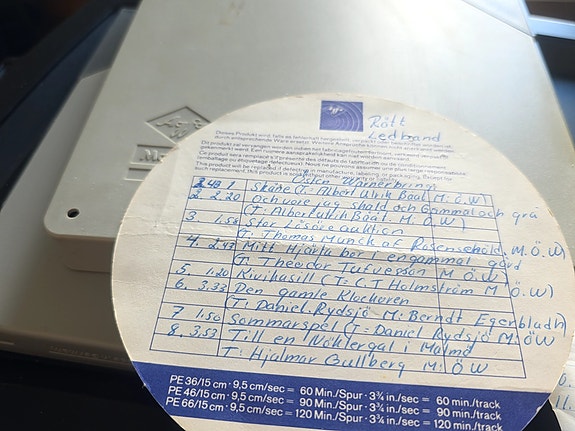 Rött
Ledband
Dieses Produkt wird, falls es fehlerhaft hergestellt, verpackt oder beschriftet wurde,
durch entsprechende Ware ersetzt. Weitere Ansprüche
Dit produkt zal vervangen worden indien het
Ce produit sera remplacé s'il présente des défauts de
(emballage ou étiquetage défectueux). Nous ne pouvons assumer une plus large responsabilité.
This product will be replaced if defective in manufacture, labeling, or packaging. Except for
such replacement, this product is sold without
Östen Warnerbring
2.48 1 Skåne (T: Albert Ulrik Bååt M: Ö.W)
2. 2.20 Och vore jag skald och Gammal och grå
(T: Albert Ulrik Bååt. M: Ö.W)
3. 1.58 Stor Lösöre auktion
T: Thomas Munck af Rosensehöld M. Ö.W)
4. 2.43 Mitt Hjärta bor i en gammal gård
T: Theodor Tufvesson M Ö W)
5. 1.20 Kivikasill (T: C.T Holmström M Ö.W)
6. 3.33 Den gamle Klockaren
T: Daniel Rydsjö M: Berndt Egerbladh)
7 1.50 Sommarspel (T: Daniel Rydsjö M: ÖW
8, 3.53 Till en Näktergal i Malmö
T: Hjalmar Gullberg M: Ö W
PE 36/15 cm · 9,5 cm/sec = 60 Min./Spur · 3¾ in./sec = 60 min./track
PE 46/15 cm · 9,5 cm/sec = 90 Min./Spur · 3¾ in./sec = 90 min./track
PE 66/15 cm · 9,5 cm/sec = 120 Min./Spur · 3¾ in./sec = 120 min./track